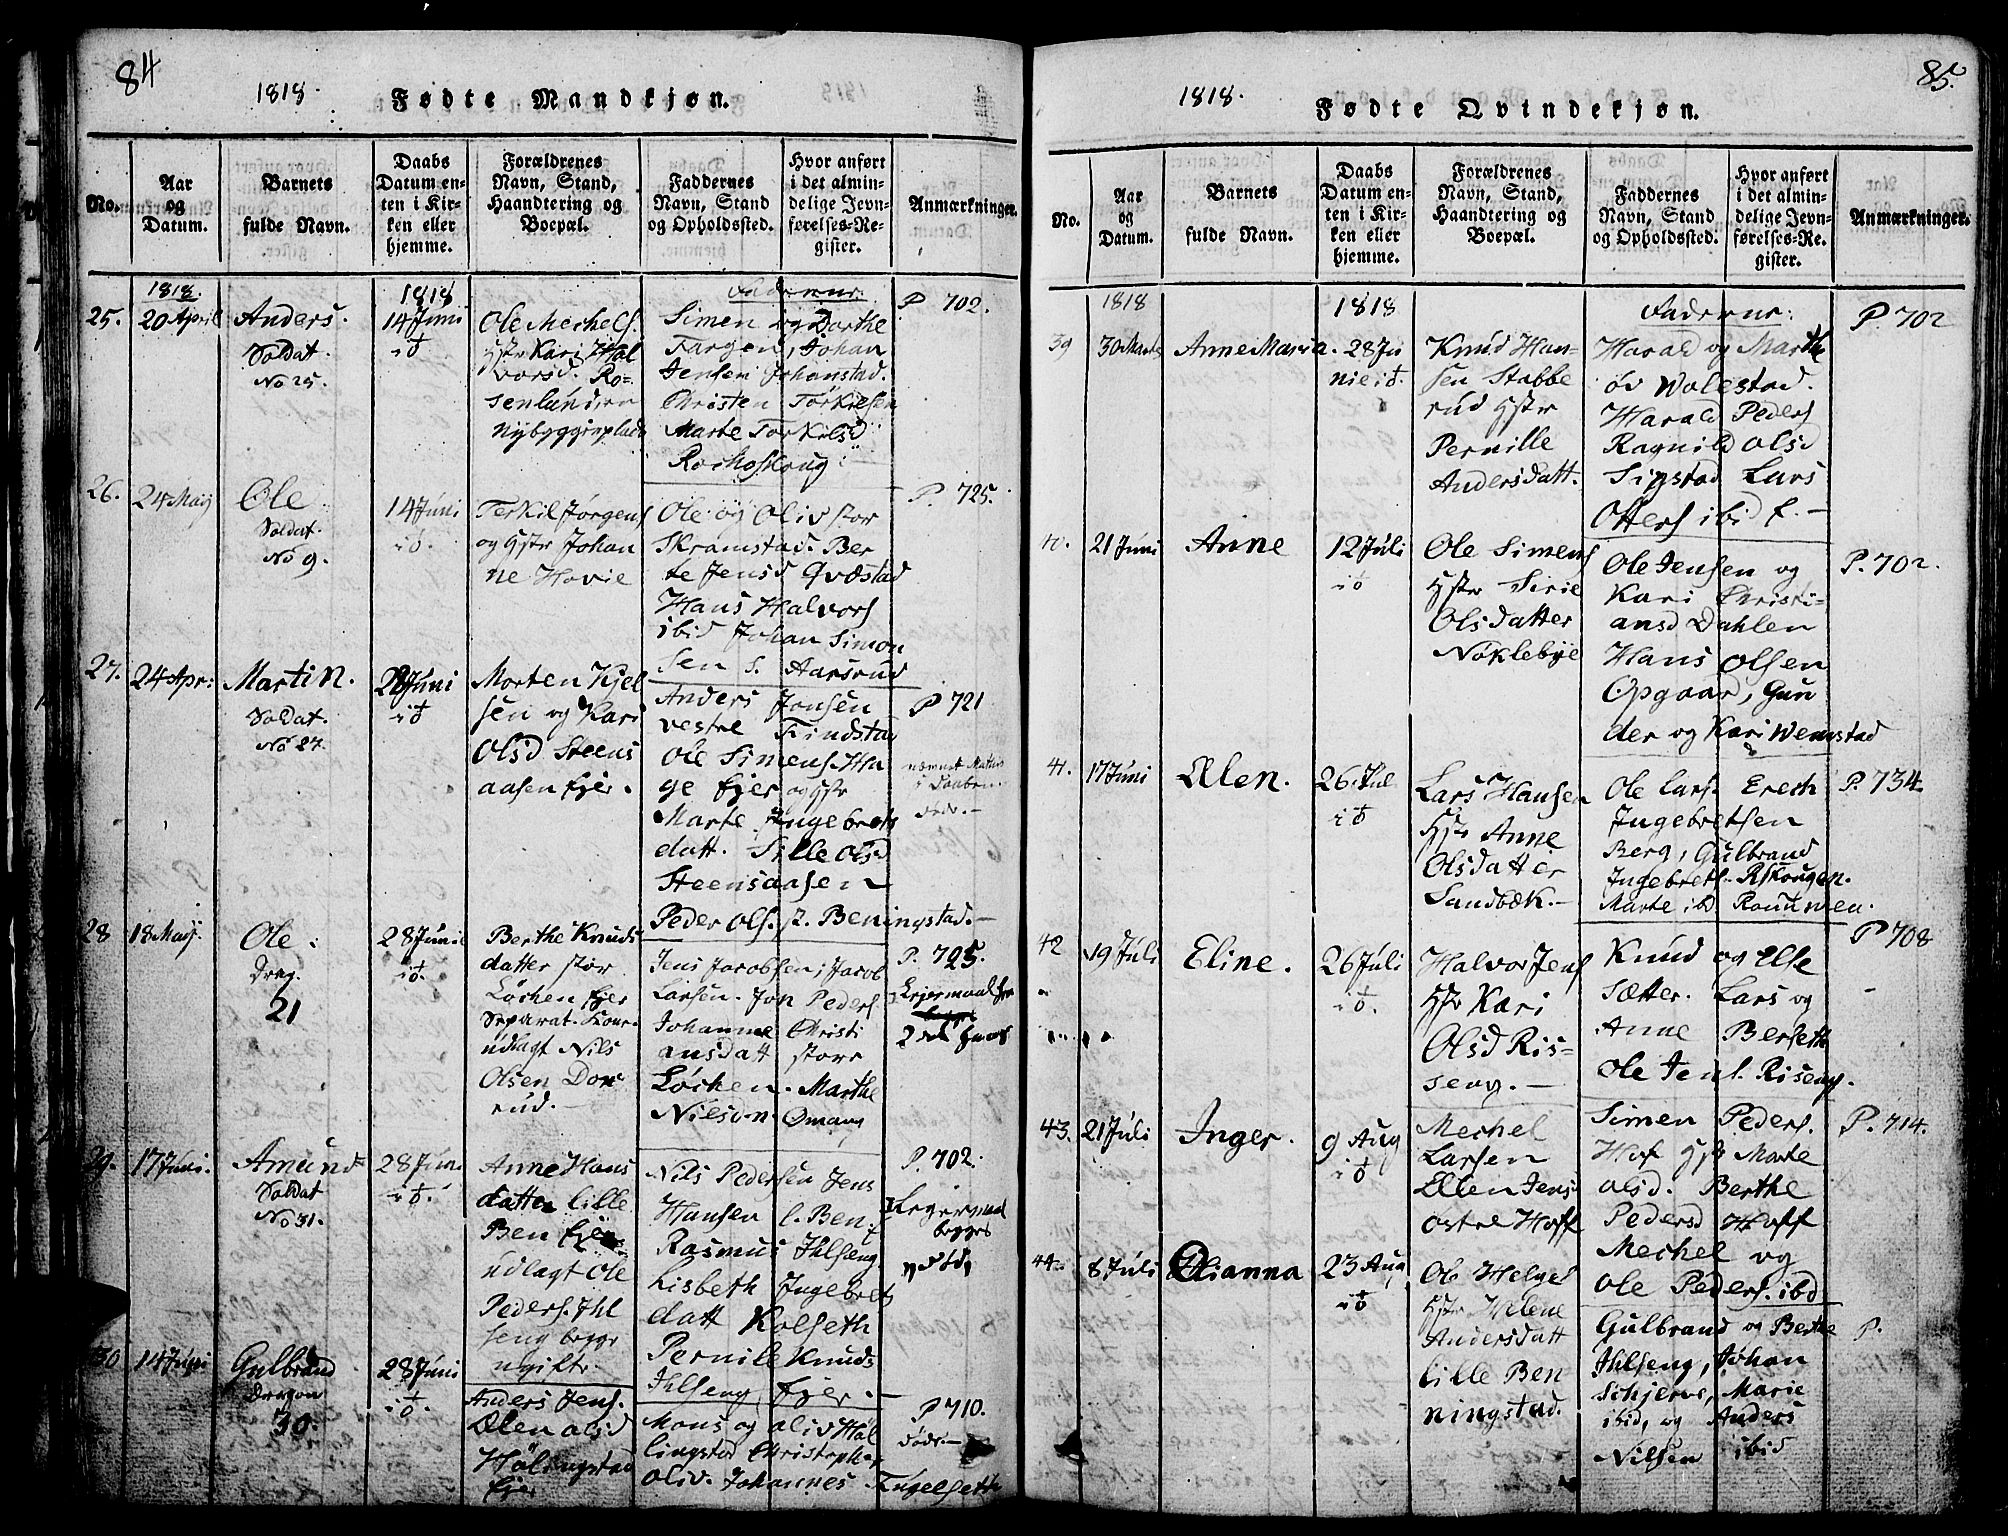 84
1818.
Fødte Mandkjøn.
No.
Aar
og
Datum.
Barnets
fulde Navn.
Daabs
Datum en-
ten i Kir-
ken eller
hjemme.
Forældrenes
Navn, Stand,
Haandtering og
Boepæl.
Faddernes
Navn, Stand
og Opholdssted.
Hvor anført
i det almin-
delige Jevn-
førelses-Re-
gister.
Anmærkninger.
1818.
25. 20 April
Anders.
Soldat.
No 25.
1818
14 Juni
Ole Mechels.
Hstr Kari Hal
vorsd. Ro-
senlund
nybyggerplads
Faderne:
Simen og Dorthe
Targen, Johan
Jensen Johanstad.
Christen Torkilsen
Marte Torkilsd
P 702.
26. 24 May
Ole
Soldat.
No 9.
14 Juni
Terkil Jørgens
og Hstr Johan
ne Hovie
Ole og Oliv stor
Skramstad. Ber
te Jensd Qvæstad
Hans Halvors
ibid Johan Simon
sen S. Aarsrud
P. 725.
27. 24 Apr:
Martin.
Soldat.
No 27.
28 Juni
Morten Kjel
sen og Kari
Olsd Steens
aasen Ejer.
Anders Jonsen
vestre Findstad
Ole Simens. Ha
ge Ejer og Hstr
Marte Ingebrets
datt. Sille Olsd
Steensaasen
Peder Ols. st. Beningstad.
P 721
28 18 May.
Ole.
Drag.
21
28 Juni
Berthe Knuds
datter stor
Løchen Ejer
Separat. Kone
udlagt Nils
Olsen Dor
rud.
Jens Jacobsen, Jacob
Larsen. Jon Peders
Johanne Christi
ansdatt store
Løchen. Marthe
Nilson. Omang
P. 725.
Lejermaal for
29. 17 Juni.
Amund
Soldat
No 31.
28 Juni
Anne Hans
datter lille
Ben Ejer
udlagt Ole
Peders. Ihl
seng begge
ugifte.
Nils Pedersen Jens
Hansen l. Ben:
Rasmus Ihlseng
Lisbeth Ingebrets
datt Kolseth
Pernile Knuds
Ihlseng Ejer.
P. 702.
Lejermaal
begges
30 14 Juni
Gulbrand
Dragon
30.
28 Juni
Anders Jens.
Ælen Olsd
Hølingstad
Ejer
Mons og Oliv Høl
lingstad Christopher
Oliv. Johannes Fugelseth
P 710.
døde
85.
1818.
Fødte Qvindekjøn.
No.
Aar
og
Datum.
Barnets
fulde Navn.
Daabs
Datum en-
ten i Kir-
ken eller
hjemme.
Forældrenes
Navn, Stand,
Haandtering og
Boepæl.
Faddernes
Navn, Stand
og Opholdssted.
Hvor anført
i det almin-
delige Jevn-
førelses-Re-
gister.
Anmærkninger.
1818
39 30 Marts
Anne Maria.
1818
28 Ju
nie
Knud Han-
sen Stabbe
rud Hstr
Pernille
Andersdatt.
Faderne:
Harald og Marthe
øv Wolestad.
Harald Peders
Ragnild Olsd
Sigstad Lars
Otters ibid
P. 702
40. 21 Juni
Anne
12 Juli
Ole Simens
Hstr Sirie
Olsdatter
Nøklebye
Ole Jensen og
Kari Christi-
ansd Dahlen
Hans Olsen
Opgaard, Gun
der og Kari Wemstad
P. 702.
41. 17 Juni
Ælen.
26 Jul
Lars Hansen
Hstr Anne
Olsdatter
Sandbæk.
Ole Lars. Erech
Ingebretsen
Berg, Gulbrand
Ingebrets. Rskougen.
Marte ibd
P. 734
42 19 Juli
Eline.
26 Juli
Halvor Jens
Hstr Kari
Olsd Ris-
seng.
Knud og Else
Sætter. Lars og
Anne Berseth
Ole Jens. Riseng.
P 708
43. 21 Juli
Inger.
9 Aug
Mechel
Larsen
Ellen Jensd
østre Hoff
Simen Peders.
Hof Hstr Marte
Olsd. Berthe
Pedersd Hoff
Mechel og
Ole Peders. ibd
P. 714.
44. 8 Juli
Olianna
23 Aug
Ole Helges
Hstr Helene
Andersdatt
lille Ben
ningstad.
Gulbrand og Berthe
Ihlseng, Johan
Schjerve, Marie
ibid, og Anders
Nilsen ibid
P.